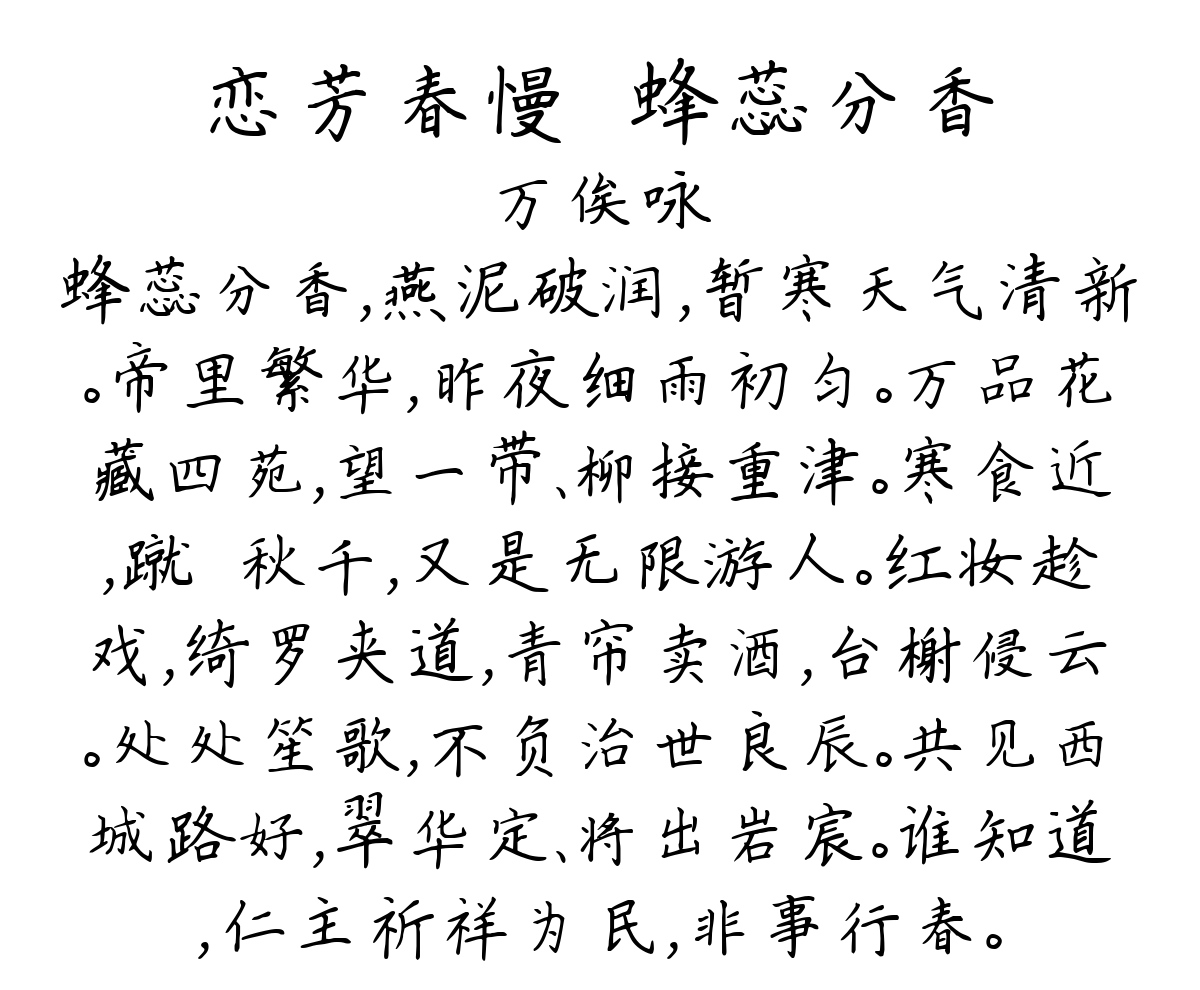 恋芳春慢 蜂蕊分香
万俟咏
蜂蕊分香,燕泥破润,暂寒天气清新
。帝里繁华,昨夜细雨初匀。万品花
藏四苑,望一带、柳接重津。寒食近
,蹴 秋千,又是无限游人。红妆趁
戏,绮罗夹道,青帘卖酒,台榭侵云
。处处笙歌,不负治世良辰。共见西
城路好,翠华定、将出岩宸。谁知道
,仁主祈祥为民,非事行春。